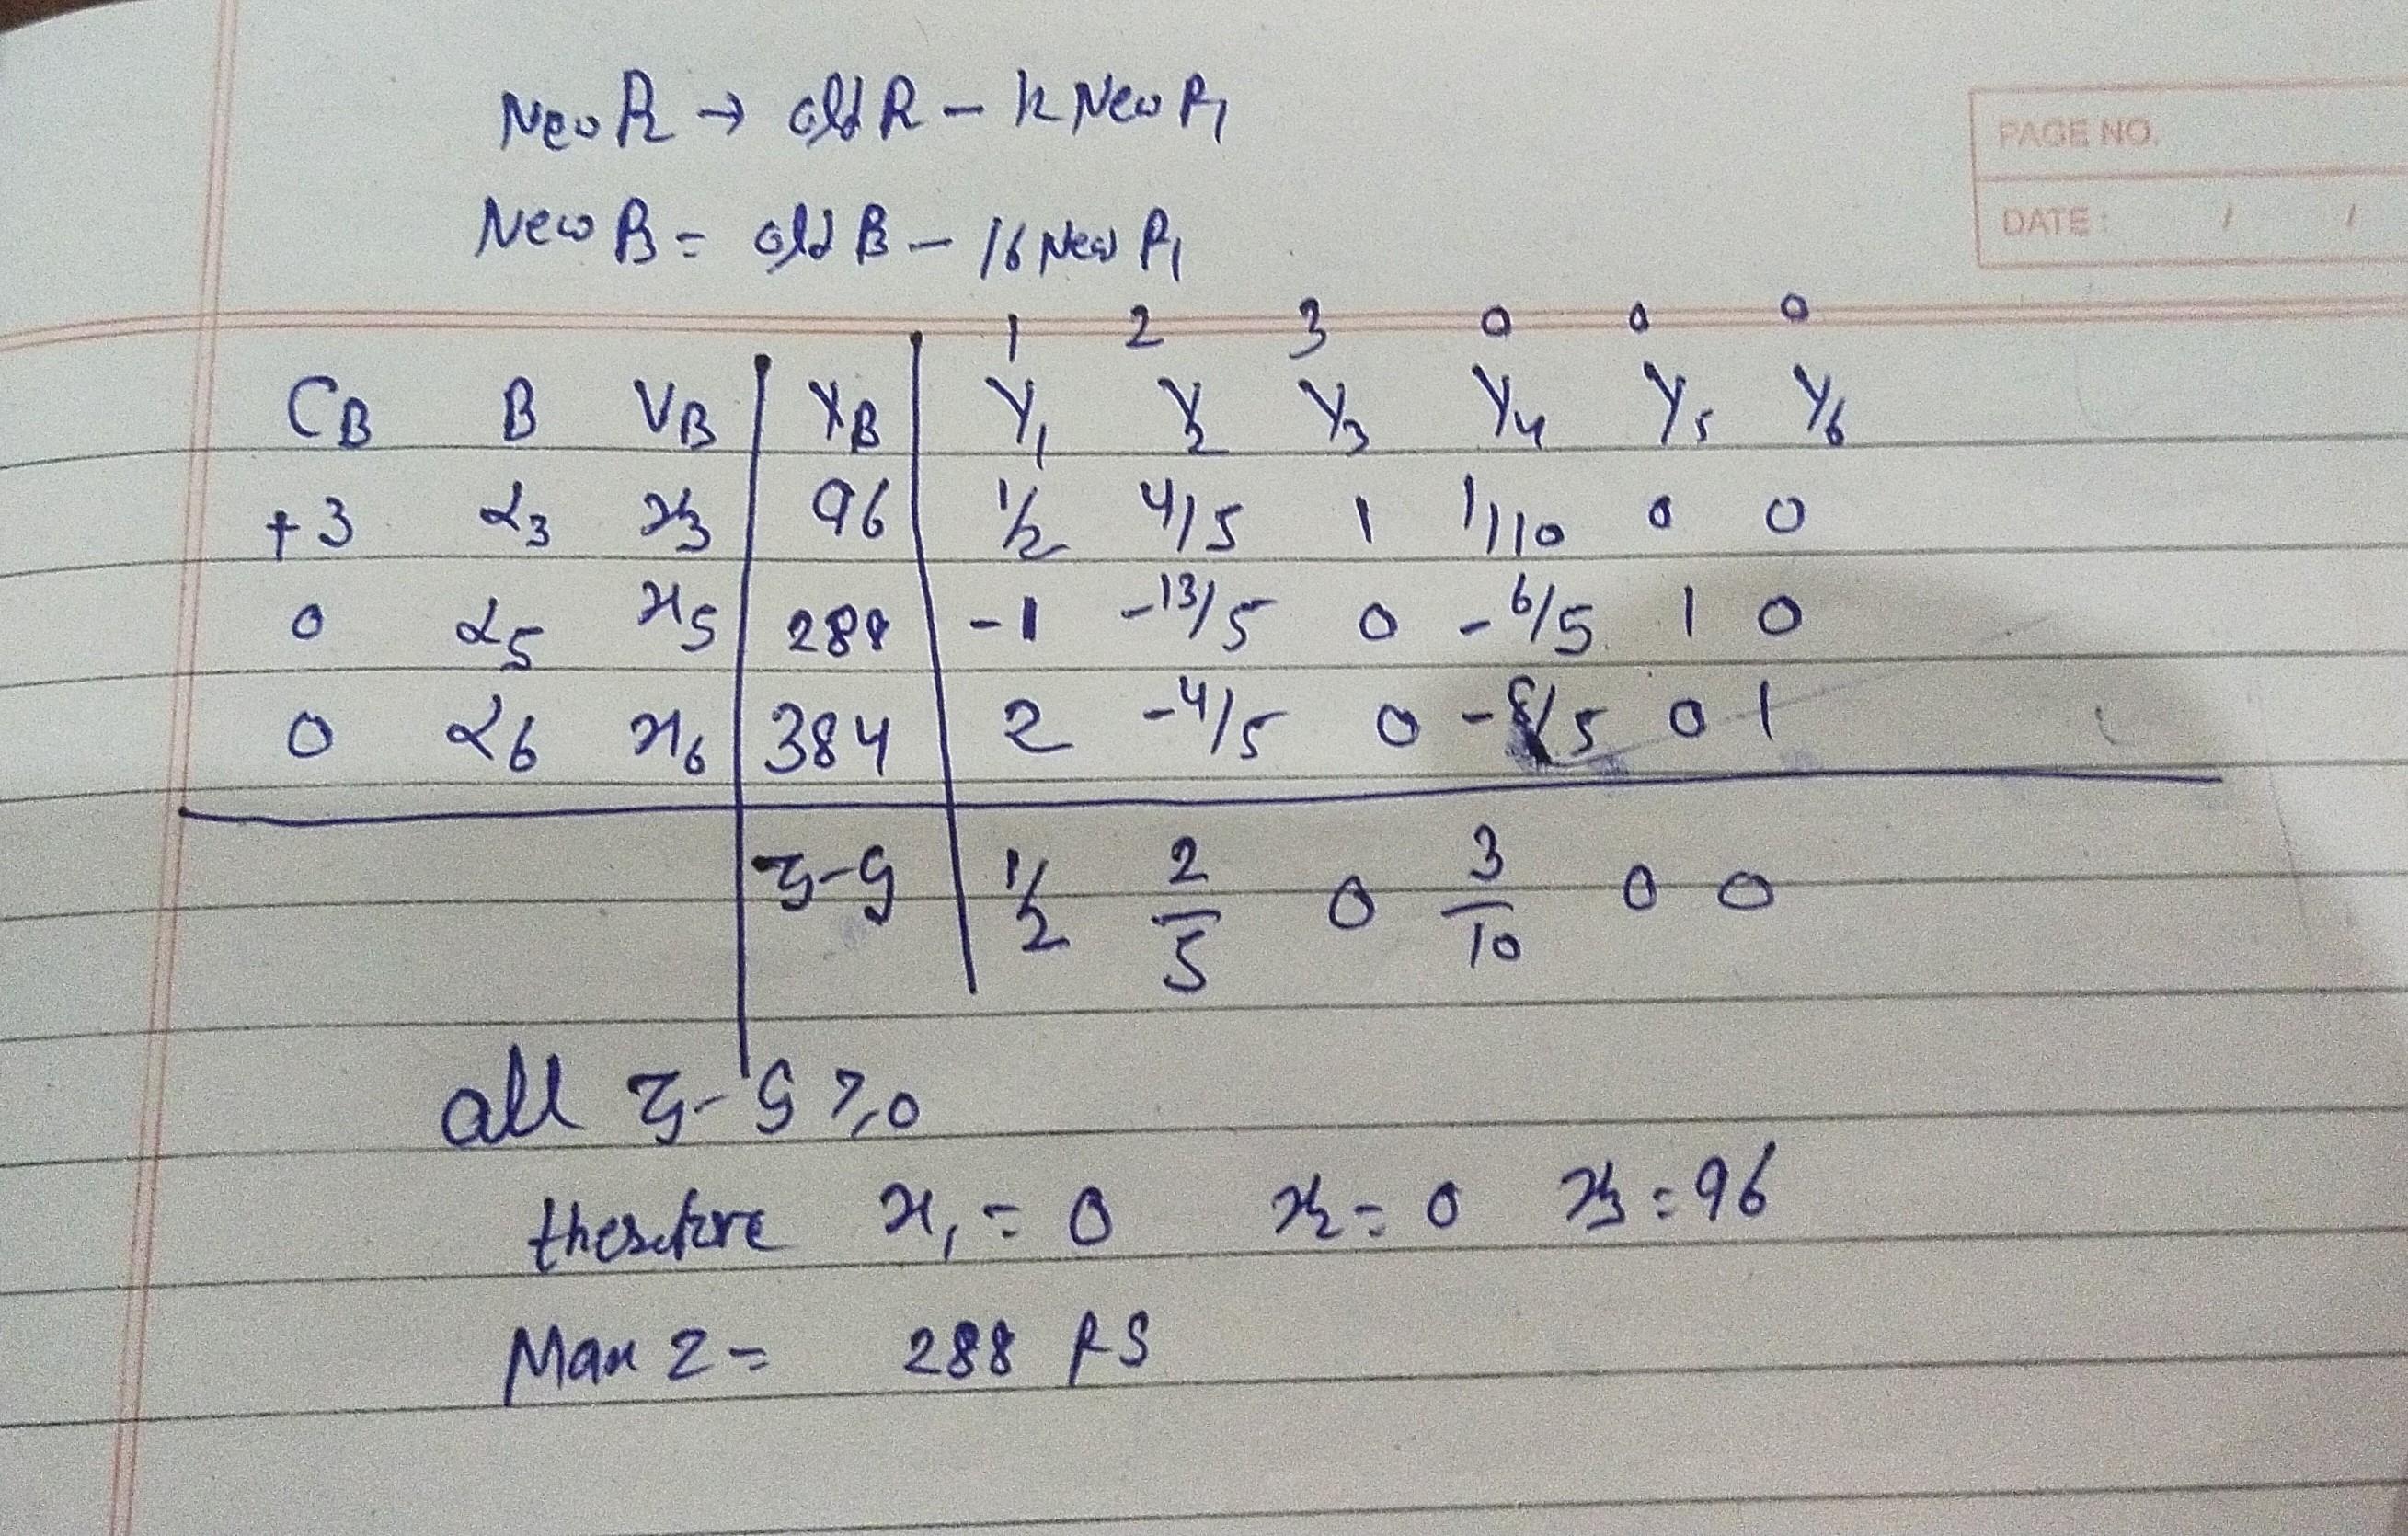 New R2 → old R2 - 12 New R1
PAGE NO.
New R3 = old R3 - 16 New R1
DATE: / /
1 2 3 0 0 0
CB B VB XB Y1 Y2 Y3 Y4 Y5 Y6
+3 α3 x3 96 1/2 4/5 1 1/10 0 0
0 α5 x5 288 -1 -13/5 0 -6/5 1 0
0 α6 x6 384 2 -4/5 0 -8/5 0 1
zj-cj 1/2 2/5 0 3/10 0 0
all zj-cj ≥ 0
therefore x1 = 0 x2 = 0 x3 = 96
Max Z = 288 RS